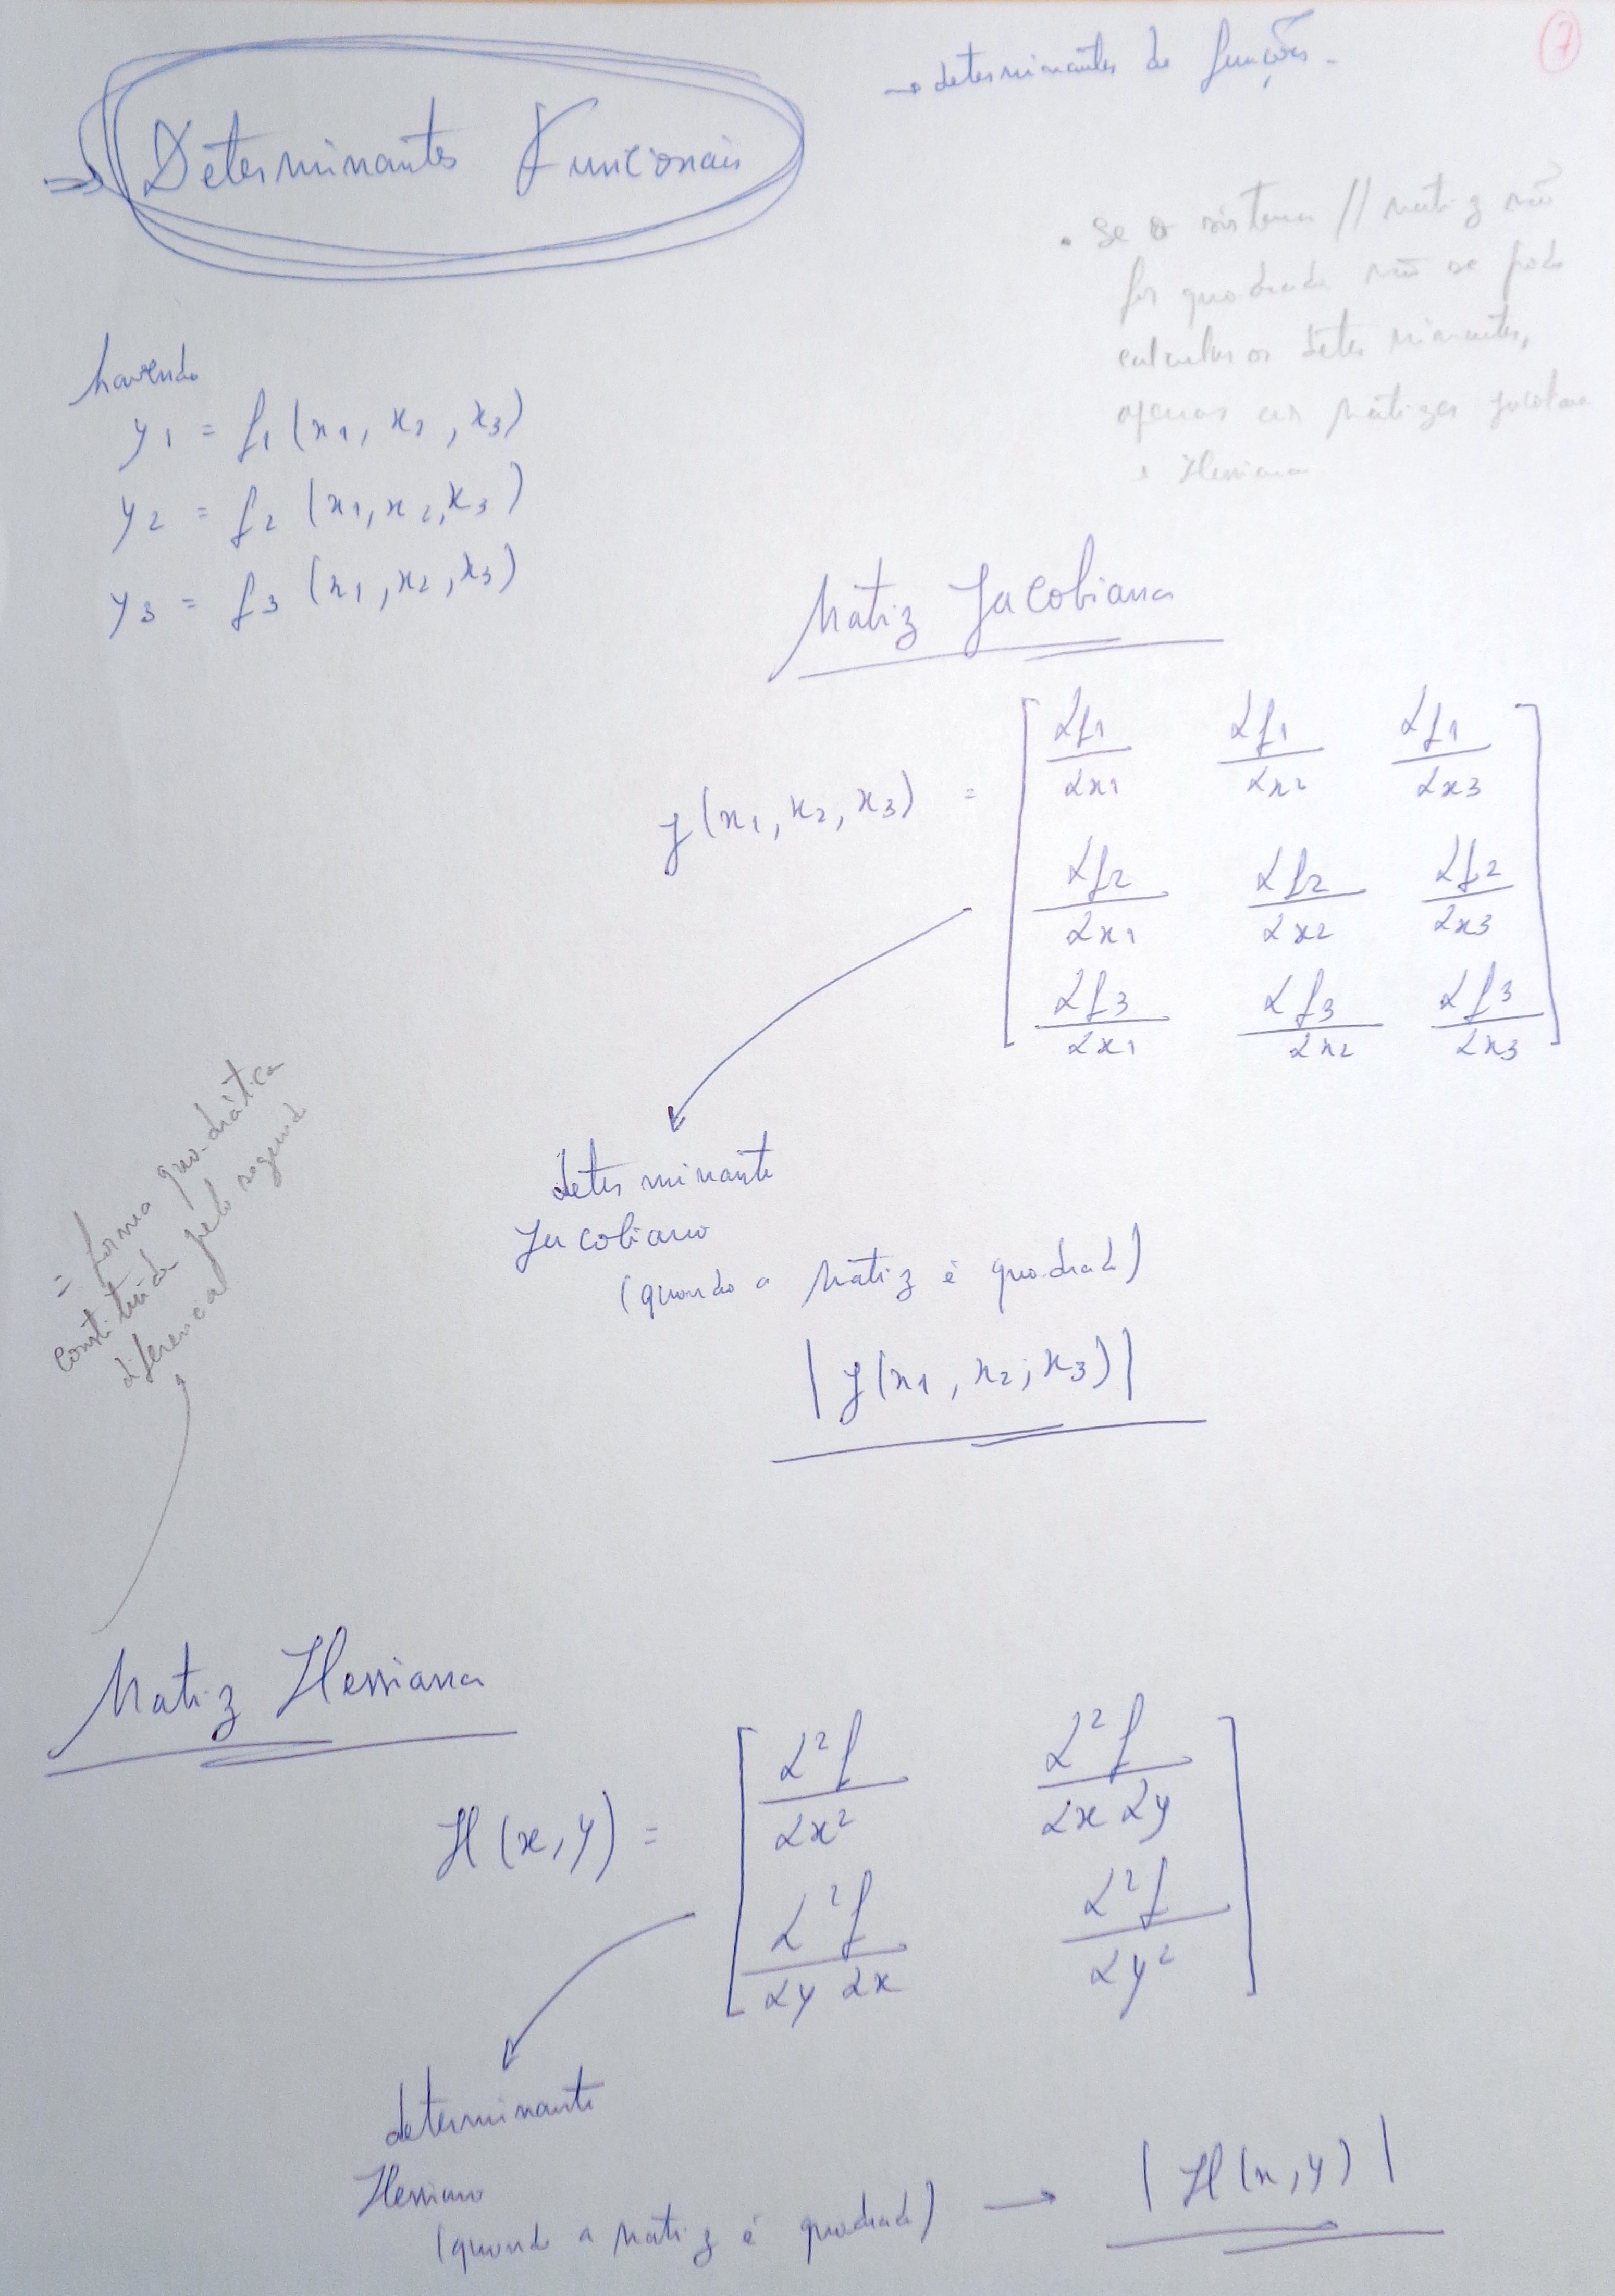 → determinantes de funções.
7
⇒ Determinantes Funcionais
• Se o sistema // matriz não
for quadrada não se pode
calcular os determinantes,
apenas as matizes
Hessiana
havendo
y1 = f1 (x1, x2, x3)
y2 = f2 (x1, x2, x3)
y3 = f3 (x1, x2, x3)
Matiz Jacobiana
J(x1, x2, x3) = [ ∂f1/∂x1 ∂f1/∂x2 ∂f1/∂x3
∂f2/∂x1 ∂f2/∂x2 ∂f2/∂x3
∂f3/∂x1 ∂f3/∂x2 ∂f3/∂x3 ]
determinante
Jacobiano
(quando a Matiz é quadrada)
|J(x1, x2, x3)|
= forma quadrática
constituída pelo segundo
diferencial
Matiz Hessiana
H(x, y) = [ ∂²f/∂x² ∂²f/∂x ∂y
∂²f/∂y ∂x ∂²f/∂y² ]
determinante
Hessiano
(quando a Matiz é quadrada) → |H(x, y)|